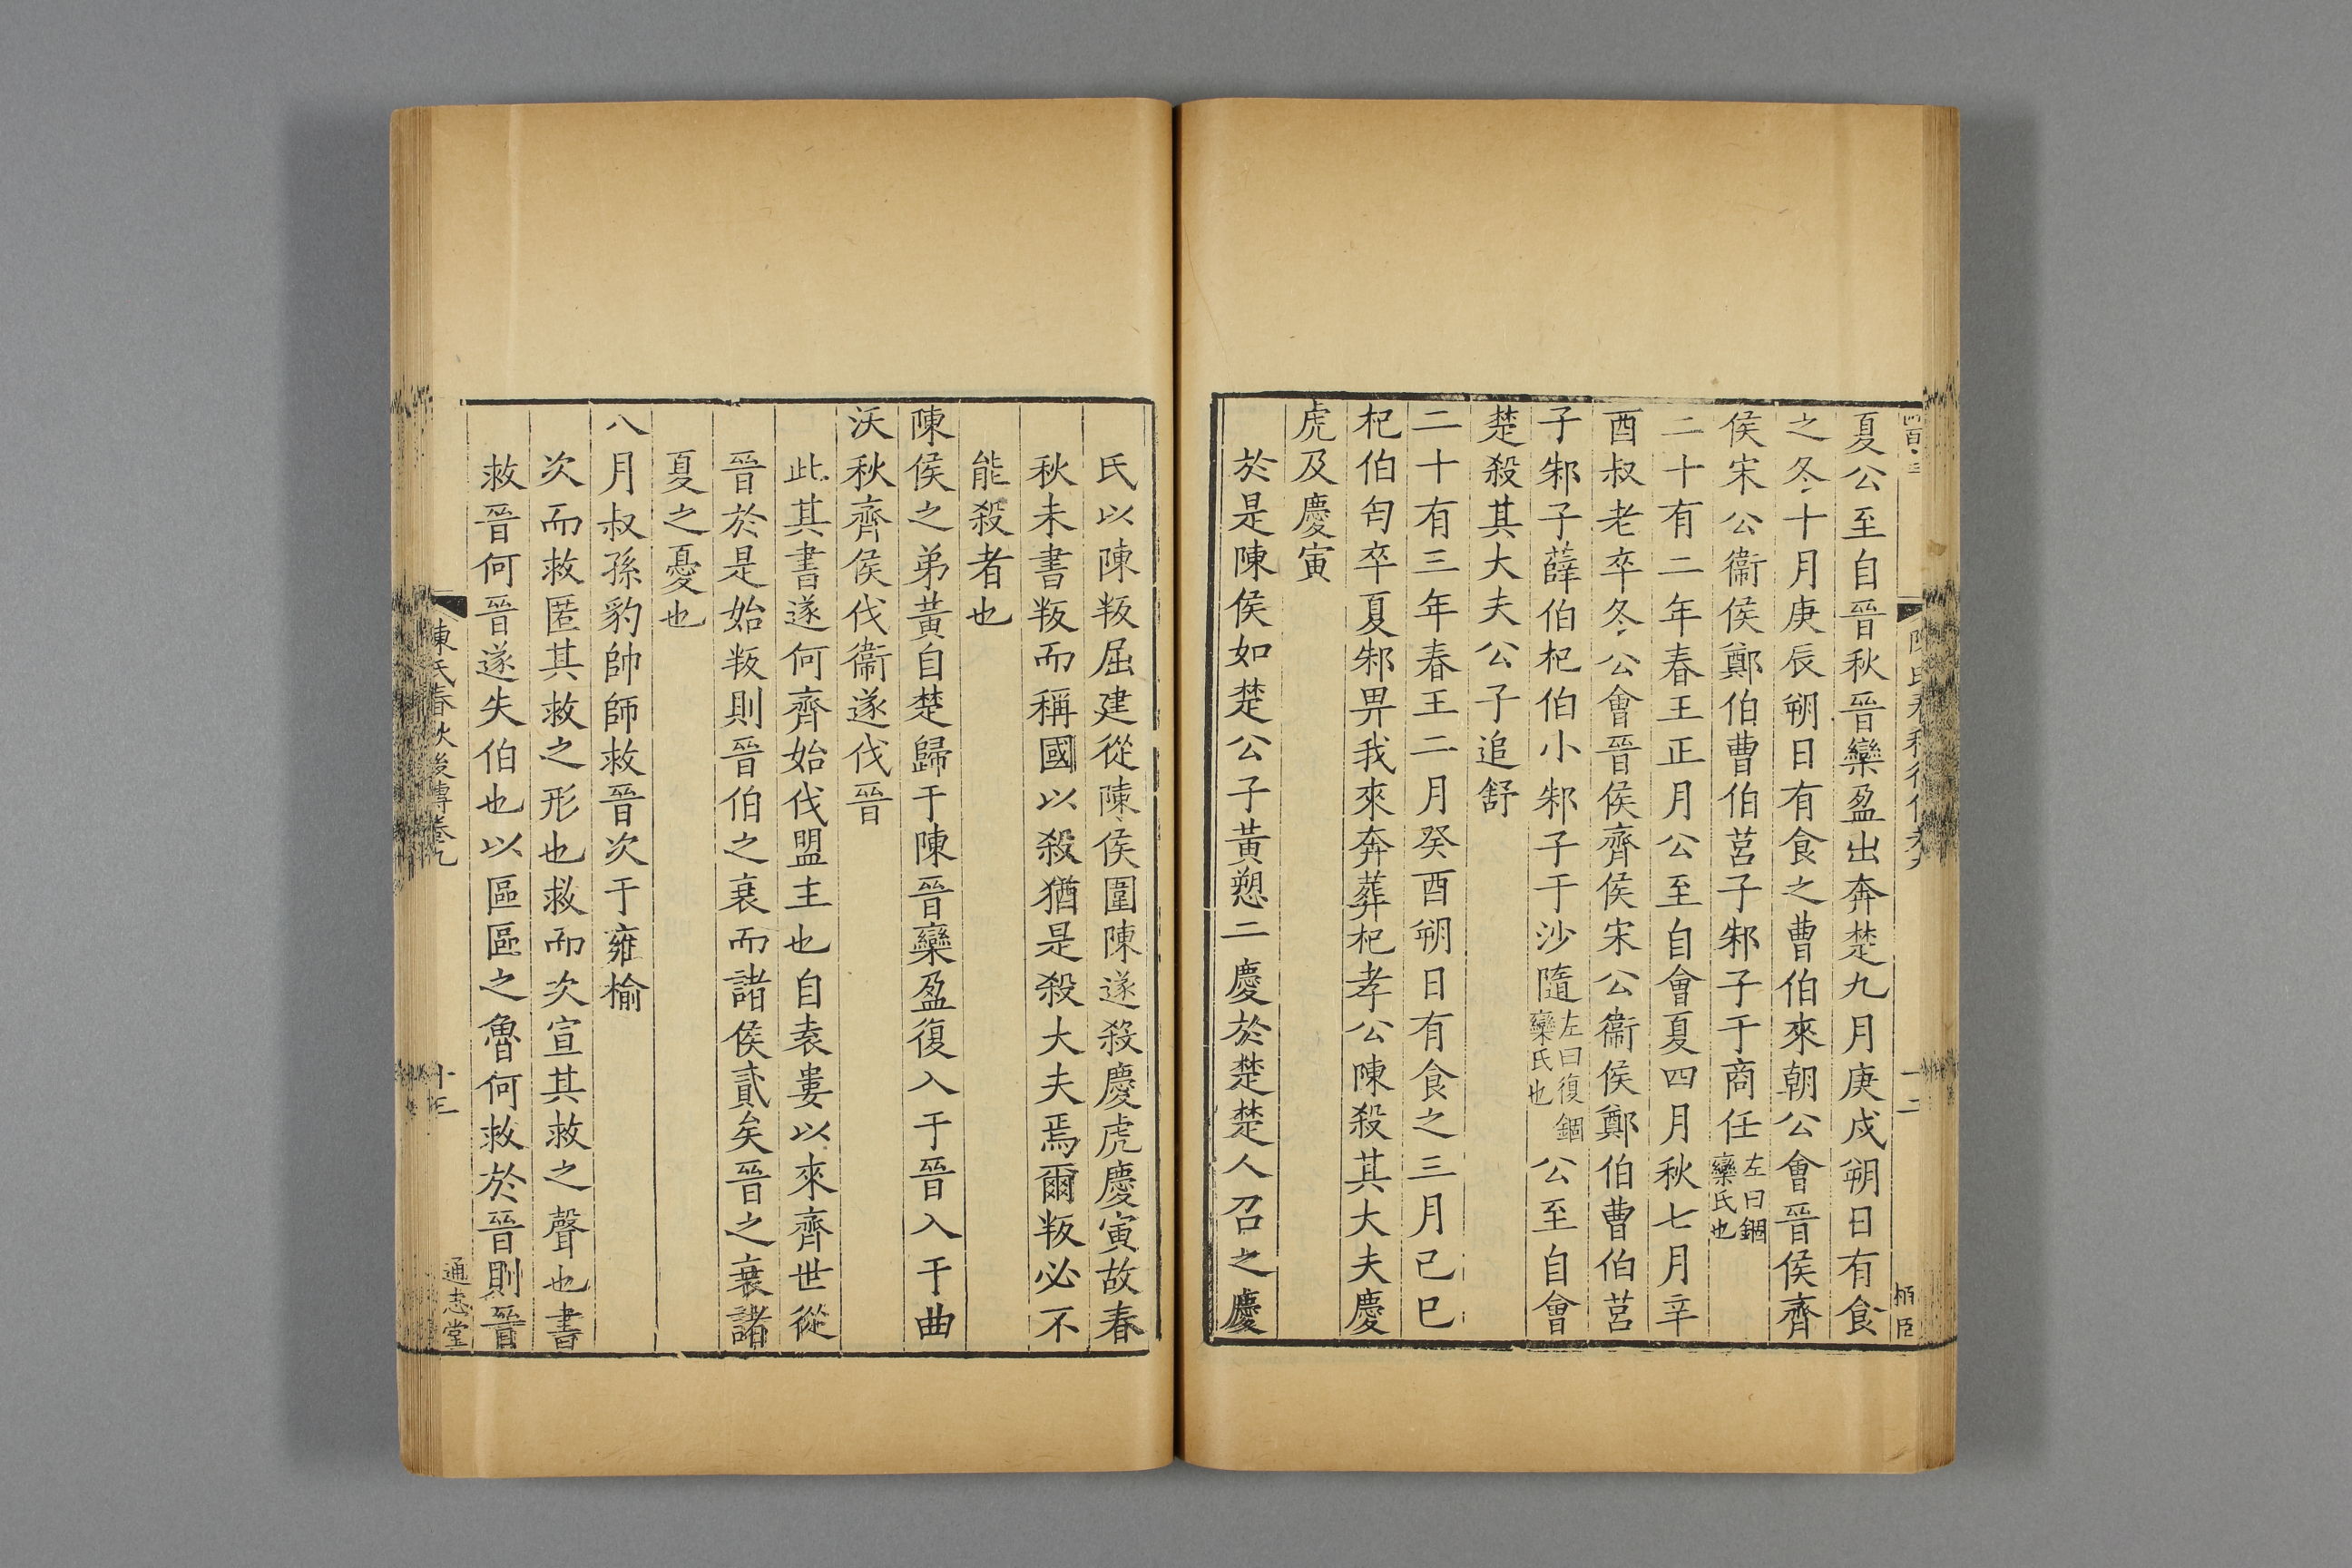 夏公至自晉秋晉欒盈出奔楚九月庚戌朔日有食
之冬十月庚辰朔日有食之曹伯來朝公會晉侯齊
侯宋公衞侯鄭伯曹伯莒子邾子于商任左曰錮欒氏也
二十有二年春王正月公至自會夏四月秋七月辛
酉叔老卒冬公會晉侯齊侯宋公衞侯鄭伯曹伯莒
子邾子薛伯杞伯小邾子于沙隨左曰復錮欒氏也公至自會
楚殺其大夫公子追舒
二十有三年春王二月癸酉朔日有食之三月己巳
杞伯匄卒夏邾畀我來奔葬杞孝公陳殺其大夫慶
虎及慶寅
於是陳侯如楚公子黃愬二慶於楚楚人召之慶
氏以陳叛屈建從陳侯圍陳遂殺慶虎慶寅故春
秋未書叛而稱國以殺猶是殺大夫焉爾叛必不
能殺者也
陳侯之弟黃自楚歸于陳晉欒盈復入于晉入于曲
沃秋齊侯伐衞遂伐晉
此其書遂何齊始伐盟主也自袁婁以來齊世從
晉於是始叛則晉伯之衰而諸侯貳矣晉之衰諸
夏之憂也
八月叔孫豹帥師救晉次于雍榆
次而救匿其救之形也救而次宣其救之聲也書
救晉何晉遂失伯也以區區之魯何救於晉則晉
陳氏春秋後傳卷九
十三
通志堂